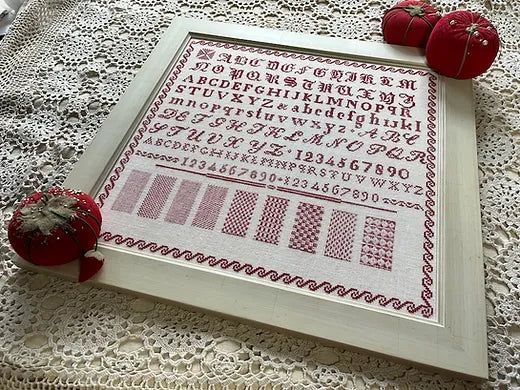 ABCDEFGHIKLM
NOPQRSTUVXYZ
ABCDEFGHIJKLMNOPQR
STUVXYZ & abcdefghijkl
mnopqrstuvwxyz · ABC
DEFGHIJKLMNOPQR
STUVWXYZ · 1234567890
ABCDEFGHIJKLMNOPQRSTUVWXYZ
1234567890 · 1234567890